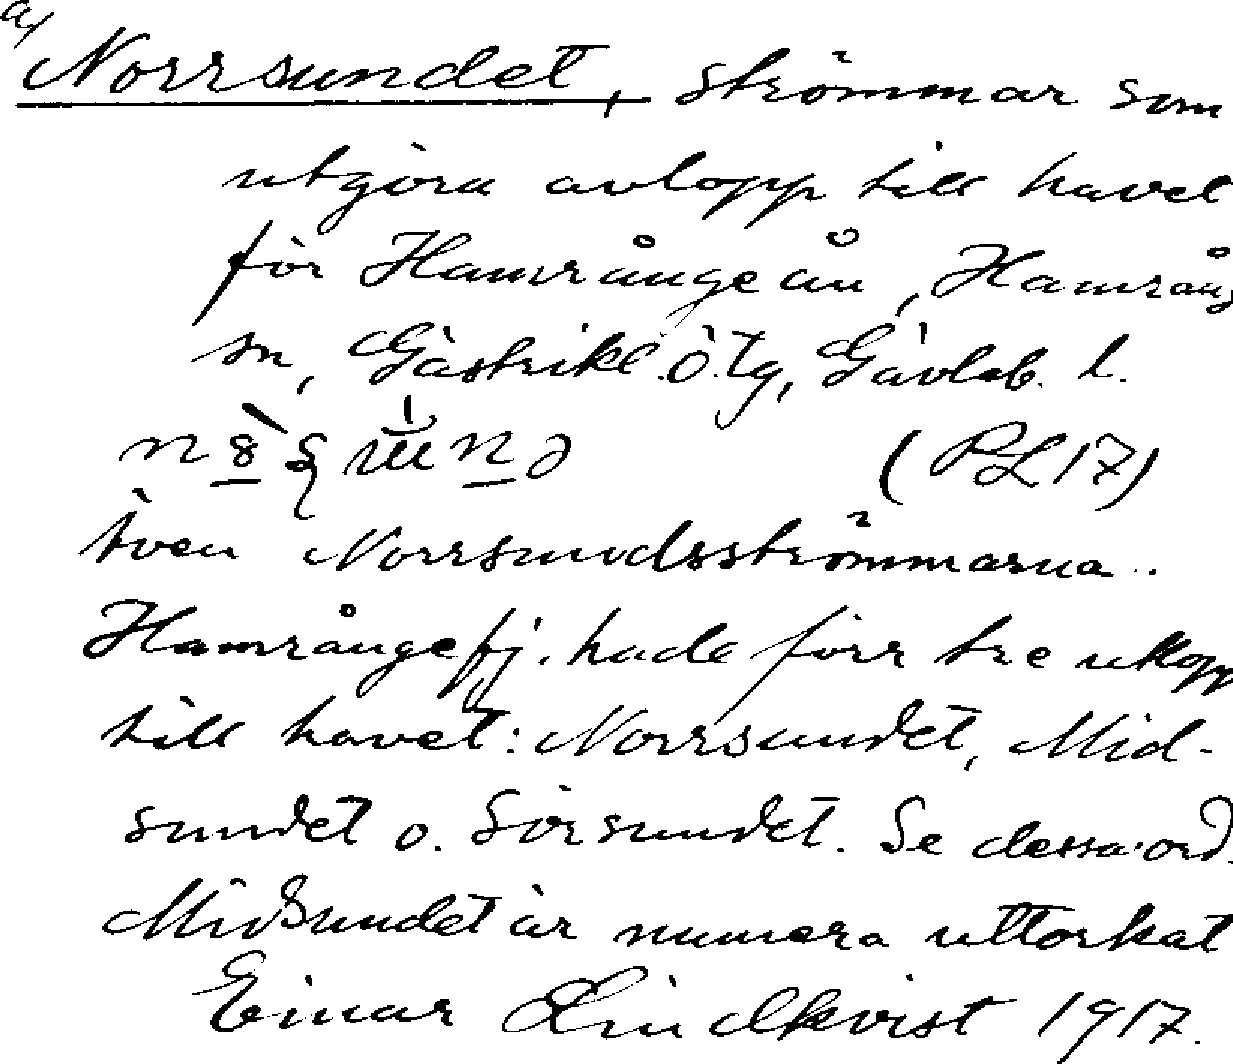 a/
Norrsundet, strömmar som
utgöra avlopp till havet
för Hamrångeån, Hamrång
sn, Gästrikl. Ö. Tg, Gävleb. l.
(PL 17)
Även Norrsundsströmmarna.
Hamrångefj. hade förr tre utlopp
till havet: Norrsundet, Mid-
sundet o. Sörsundet. Se dessa ord.
Midsundet är numera uttorkat
Einar Lindkvist 1917.